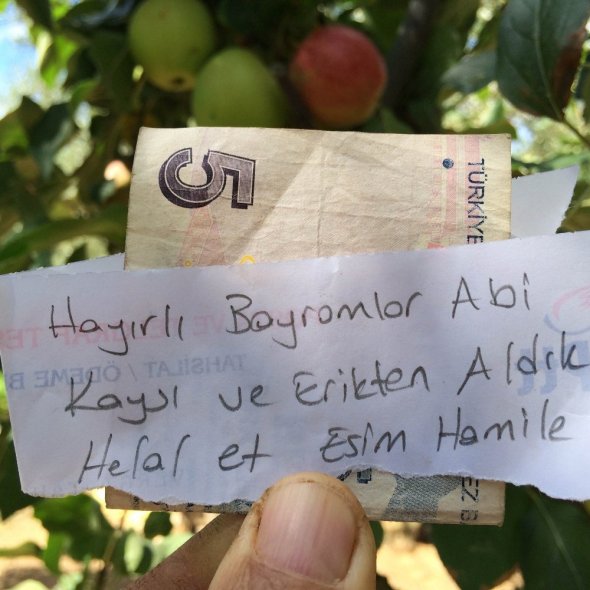 5
TÜRKİYE
Hayırlı Bayramlar Abi
Kaysı ve Erikten Aldık
Helal et Eşim Hamile
TAHSİLAT / ÖDEME B
EZ B